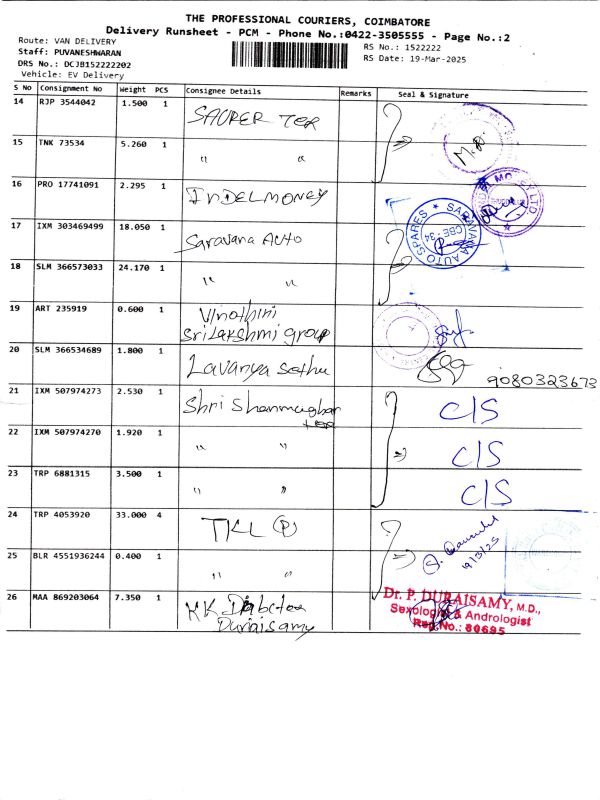 THE PROFESSIONAL COURIERS, COIMBATORE
Delivery Runsheet - PCM - Phone No.:0422-3505555 - Page No.:2
Route: VAN DELIVERY
RS No.: 1522222
Staff: PUVANESHWARAN
RS Date: 19-Mar-2025
DRS No.: DCJB152222202
Vehicle: EV Delivery
S No Consignment No Weight PCS Consignee Details Remarks Seal & Signature
14 RJP 3544042 1.500 1 SAURER TEX
15 TNK 73534 5.260 1 " "
16 PRO 17741091 2.295 1 INDELMONEY
17 IXM 303469499 18.050 1 Saravana Auto
SARAVANA AUTO SPARES CBE-34
18 SLM 366573033 24.170 1 " "
19 ART 235919 0.600 1 Vinothini
Srilakshmi group
20 SLM 366534689 1.800 1 Lavanya Sethu 9080323673
21 IXM 507974273 2.530 1 Shri Shanmughar C/S
22 IXM 507974270 1.920 1 " " C/S
23 TRP 6881315 3.500 1 " " C/S
24 TRP 4053920 33.000 4 TKL (P)
19/3/25
25 BLR 4551936244 0.400 1 " "
26 MAA 869203064 7.350 1 KK Diabetea
Duraisamy
Dr. P. DURAISAMY, M.D.,
Sexologist & Andrologist
Reg.No.: 80695